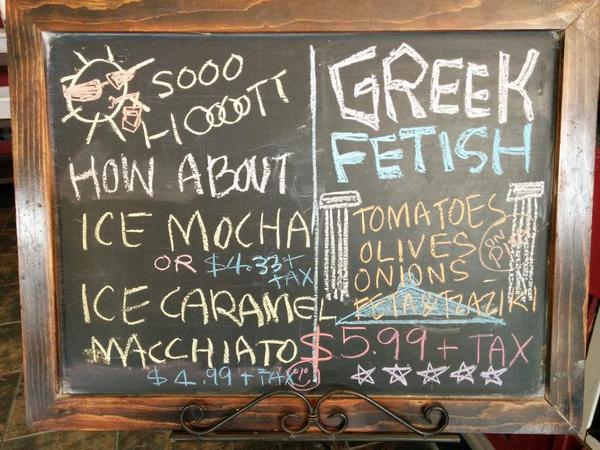 SOOO
HOOOOTT
HOW ABOUT
ICE MOCHA
OR $4.33 + TAX
ICE CARAMEL
MACCHIATO
$4.99 + TAX
GREEK
FETISH
TOMATOES
OLIVES
ONIONS
FETA & TZAZIKI
$5.99 + TAX